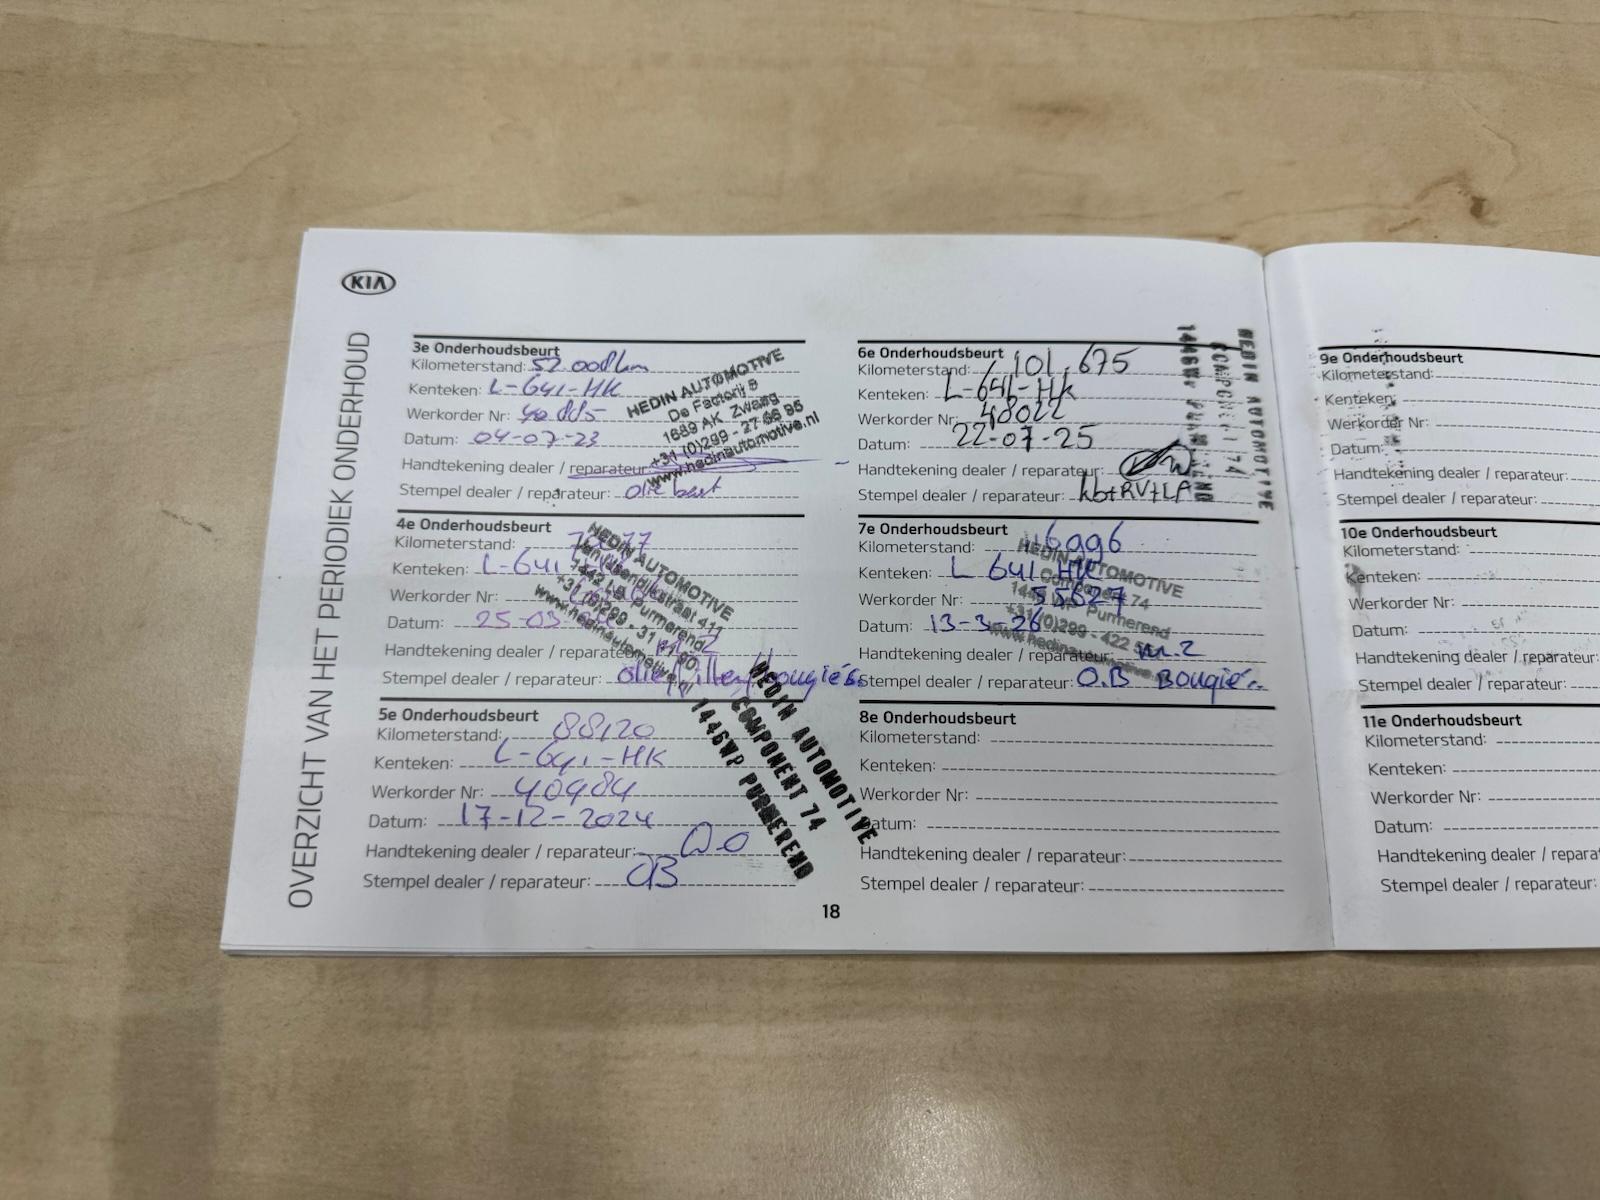 KIA
OVERZICHT VAN HET PERIODIEK ONDERHOUD
3e Onderhoudsbeurt
Kilometerstand: 52.000km
Kenteken: L-641-HK
Werkorder Nr:
Datum: 04-07-23
Handtekening dealer / reparateur:
Stempel dealer / reparateur: olie beurt
HEDIN AUTOMOTIVE
De Factorij 8
1689 AK Zwaag
+31 (0)299 - 27 66 95
www.hedinautomotive.nl
4e Onderhoudsbeurt
Kilometerstand:
Kenteken: L-641
Werkorder Nr:
Datum: 25-03
Handtekening dealer / reparateur:
Stempel dealer / reparateur: olie/filter/bougiés
HEDIN AUTOMOTIVE
Purmerend
www.hedinautomotive.nl
5e Onderhoudsbeurt
Kilometerstand: 88120
Kenteken: L-641-HK
Werkorder Nr: 40984
Datum: 17-12-2024
Handtekening dealer / reparateur:
Stempel dealer / reparateur: OB
HEDIN AUTOMOTIVE
COMPONENT 74
1446WP PURMEREND
6e Onderhoudsbeurt
Kilometerstand: 101.675
Kenteken: L-641-HK
Werkorder Nr: 48022
Datum: 22-07-25
Handtekening dealer / reparateur:
Stempel dealer / reparateur: kb+RV+LA
HEDIN AUTOMOTIVE
COMPONENT 74
1446WP PURMEREND
7e Onderhoudsbeurt
Kilometerstand: 116996
Kenteken: L 641 HK
Werkorder Nr: 55627
Datum: 13-3-26
Handtekening dealer / reparateur: m.2
Stempel dealer / reparateur: O.B Bougiés
HEDIN AUTOMOTIVE
Component 74
1446 WP Purmerend
+31(0)299 - 422
www.hedinautomotive.nl
8e Onderhoudsbeurt
Kilometerstand:
Kenteken:
Werkorder Nr:
Datum:
Handtekening dealer / reparateur:
Stempel dealer / reparateur:
18
9e Onderhoudsbeurt
Kilometerstand:
Kenteken:
Werkorder Nr:
Datum:
Handtekening dealer / reparateur:
Stempel dealer / reparateur:
10e Onderhoudsbeurt
Kilometerstand:
Kenteken:
Werkorder Nr:
Datum:
Handtekening dealer / reparateur:
Stempel dealer / reparateur:
11e Onderhoudsbeurt
Kilometerstand:
Kenteken:
Werkorder Nr:
Datum:
Handtekening dealer / repara
Stempel dealer / reparateur: